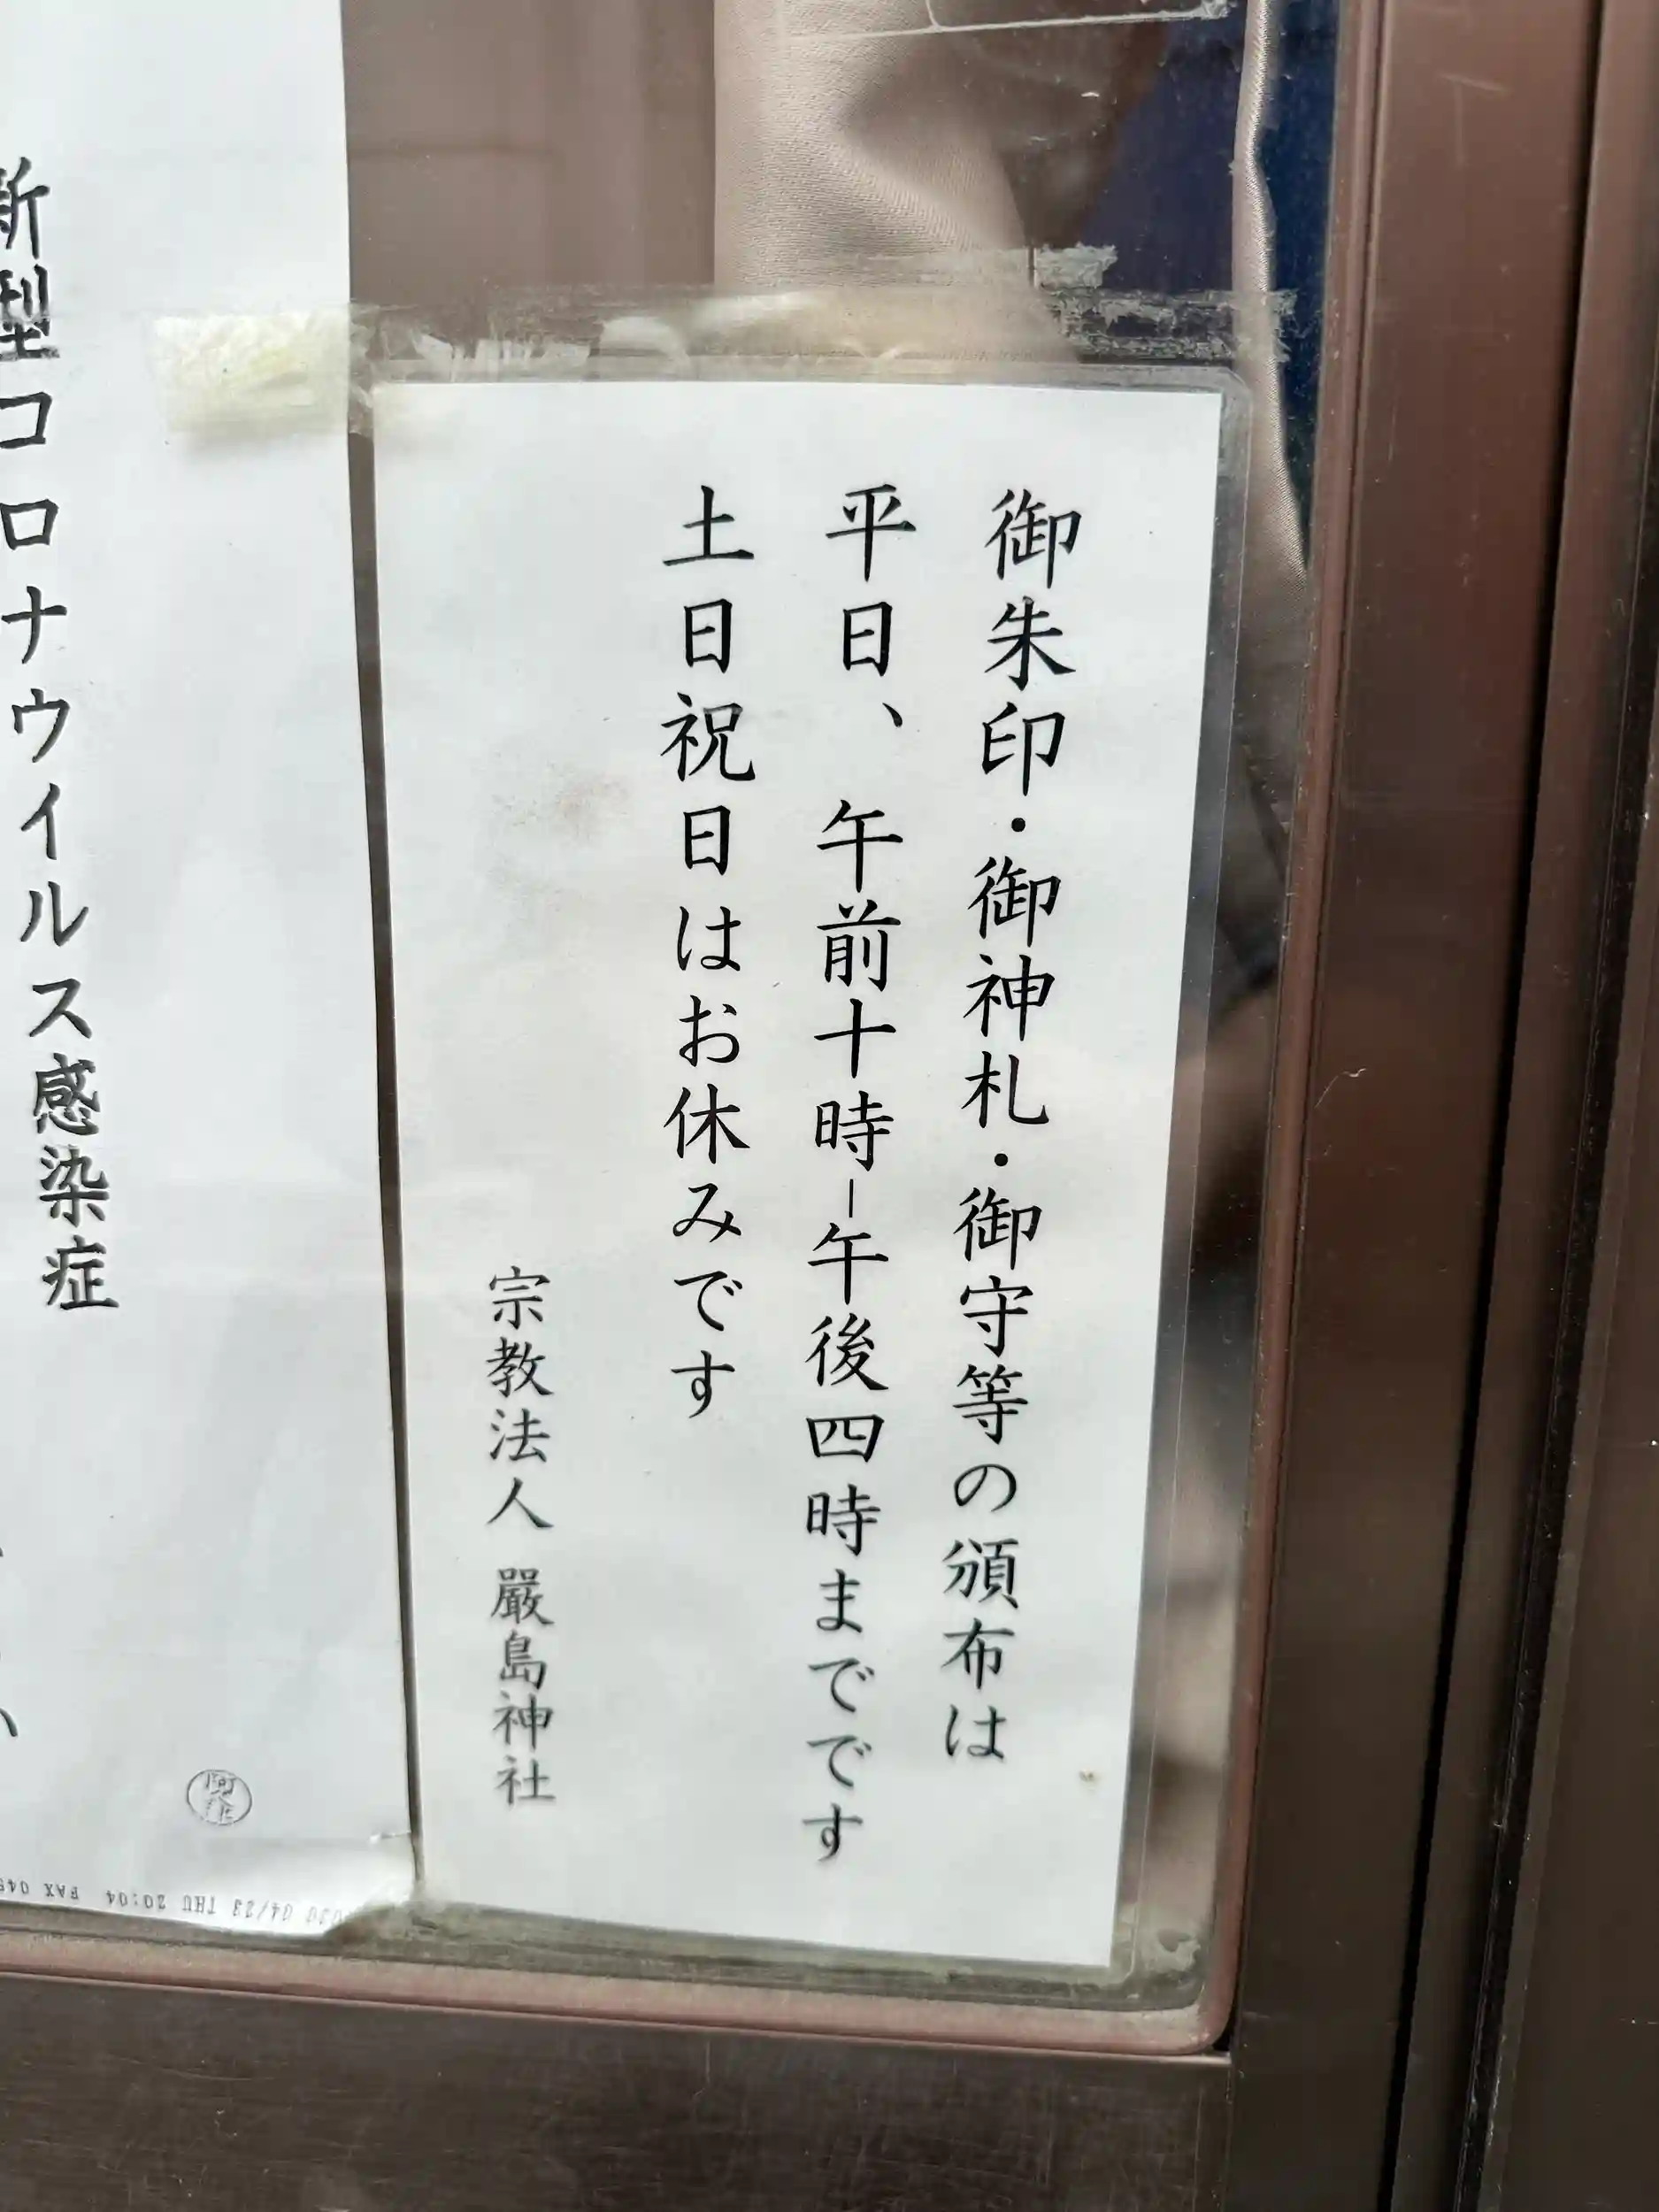 御朱印・御神札・御守等の頒布は
平日、午前十時-午後四時までです
土日祝日はお休みです
宗教法人 嚴島神社
新型コロナウイルス感染症
04/23 THU 20:04 FAX 045